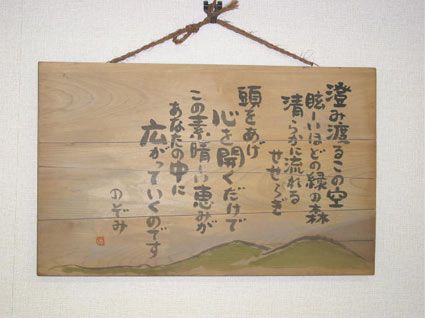 澄み渡るこの空
眩しいほどの緑の森
清らかに流れる
せせらぎ
頭をあげ
心を開くだけで
この素晴しい恵みが
あなたの中に
広がっていくのです
のぞみ